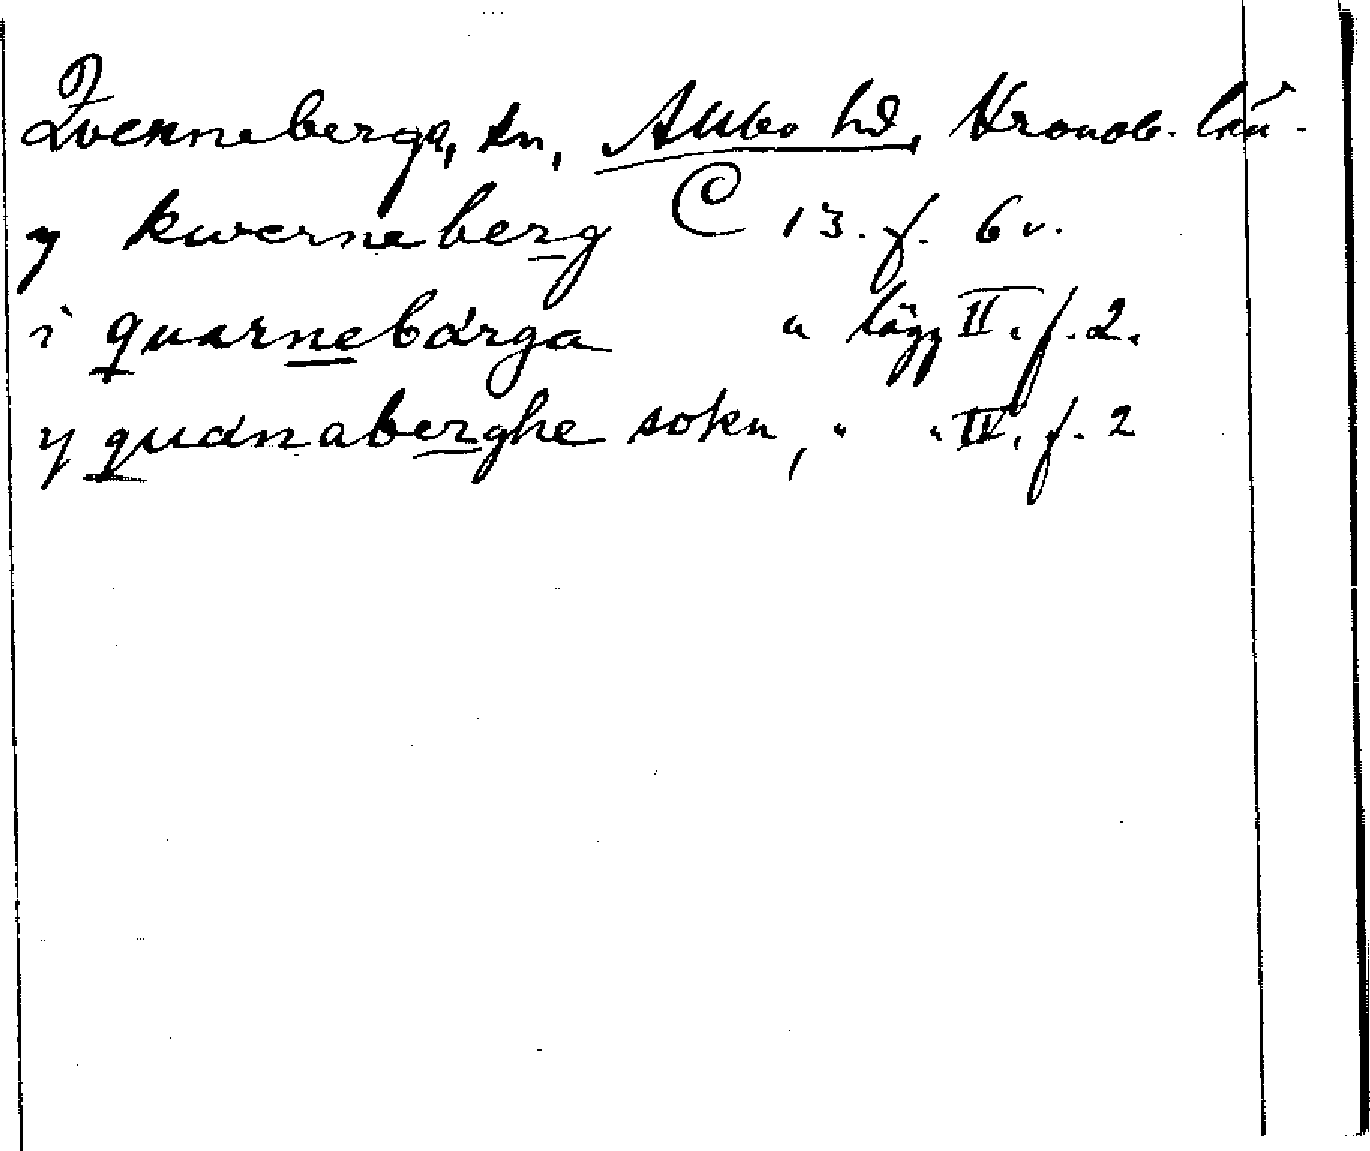 Qvenneberga, sn, Allbo hd, Kronob. län.
y kwerneberg C 13. f. 6 v.
i quarnebärga " lägg II. f. 2.
y quænaberghe sokn, " " IV. f. 2